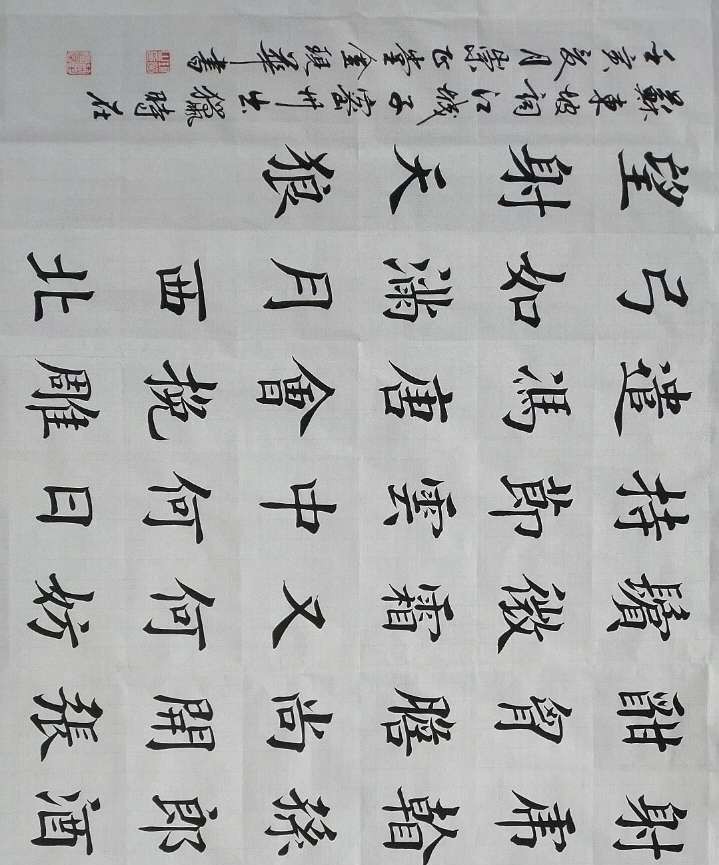 射虎看孫郎酒
酣胷膽尚開張
鬢微霜又何妨
持節雲中何日
遣馮唐會挽雕
弓如滿月西北
望射天狼
蘇東坡詞江城子密州出獵時在
亥夏月崇堂金現華書